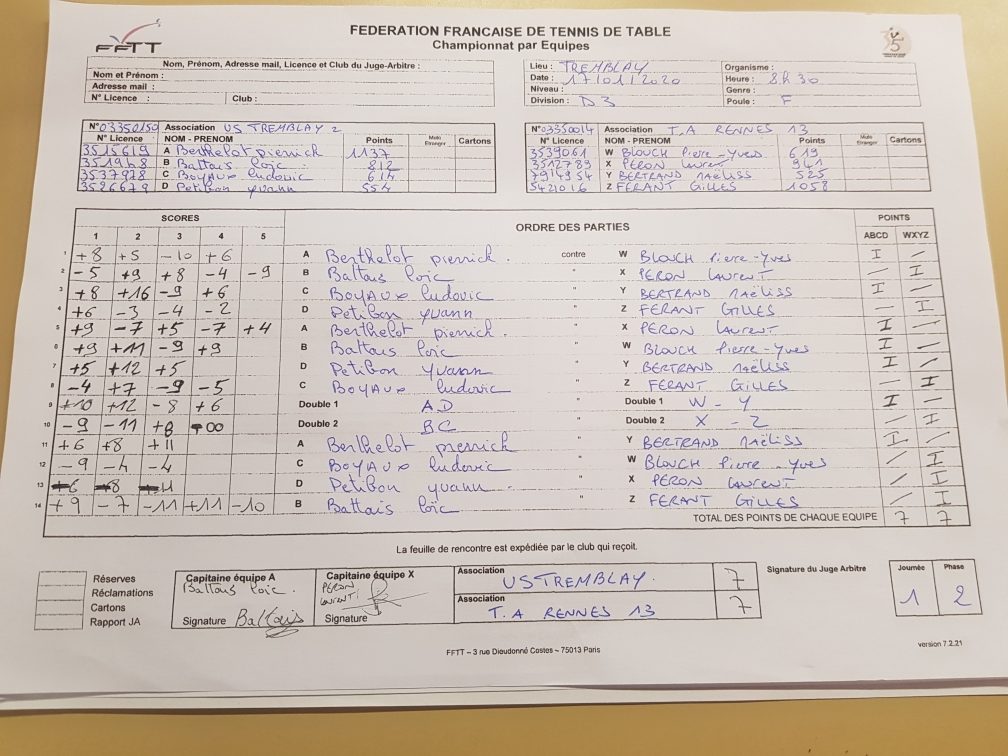 FFTT
FEDERATION FRANCAISE DE TENNIS DE TABLE
Championnat par Equipes
35
Nom, Prénom, Adresse mail, Licence et Club du Juge-Arbitre :
Nom et Prénom :
Adresse mail :
N° Licence : Club :
Lieu : TREMBLAY Organisme :
Date : 17/01/2020 Heure : 8h30
Niveau : Genre :
Division : D3 Poule : F
N° 03350150 Association US TREMBLAY 2
N° Licence NOM - PRENOM Points Mute Etranger Cartons
3515619 A Berthelot pierrick 1137
B Battais loïc 812
3537978 C BOYAUX ludovic 614
3526679 D Petibon yvann 554
N° 03350014 Association T.A RENNES 13
N° Licence NOM - PRENOM Points Mute Etranger Cartons
3539061 W BLOUCH Pierre-Yves 619
3512789 X PERON Laurent 941
7914954 Y BERTRAND Maëliss 525
5421016 Z FERANT GILLES 1058
SCORES ORDRE DES PARTIES POINTS
1 2 3 4 5 ABCD WXYZ
1 +8 +5 -10 +6 A Berthelot pierrick. contre W BLOUCH Pierre-Yves I /
2 -5 +9 +8 -4 -9 B Battais loïc " X PERON Laurent / I
3 +8 +16 -9 +6 C BOYAUX ludovic " Y BERTRAND Maëliss I /
4 +6 -3 -4 -2 D Petibon yvann " Z FERANT GILLES / I
5 +9 -7 +5 -7 +4 A Berthelot pierrich. " X PERON Laurent I /
6 +9 +11 -9 +9 B Battais loïc " W BLOUCH Pierre-Yves I /
7 +5 +12 +5 D Petibon yvann " Y BERTRAND Maëliss I /
8 -4 +7 -9 -5 C BOYAUX ludovic " Z FERANT GILLES / I
9 +10 +12 -8 +6 Double 1 AD " Double 1 W - Y I /
10 -9 -11 +8 -00 Double 2 BC " Double 2 X - Z / I
11 +6 +8 +11 A Berthelot pierrick " Y BERTRAND Maëliss I /
12 -9 -4 -4 C BOYAUX ludovic " W BLOUCH Pierre-Yves / I
13 -6 -8 -11 D Petibon yvann. " X PERON Laurent / I
14 +9 -7 -11 +11 -10 B Battais loïc " Z FERANT GILLES / I
TOTAL DES POINTS DE CHAQUE EQUIPE 7 7
La feuille de rencontre est expédiée par le club qui reçoit.
Réserves
Réclamations
Cartons
Rapport JA
Capitaine équipe A
Battais loïc.
Signature Battais
Capitaine équipe X
PERON
Laurent
Signature
Association US TREMBLAY. 7
Association T.A RENNES 13 7
Signature du Juge Arbitre
Journée Phase
1 2
FFTT – 3 rue Dieudonné Costes – 75013 Paris
version 7.2.21